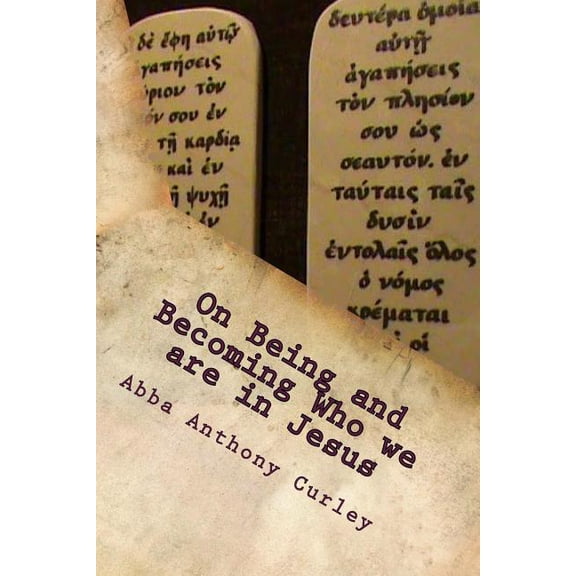 δὲ ἔφη αὐτῷ
γαπήσεις
ύριον τὸν
όν σου ἐν
τῇ καρδίᾳ
καὶ ἐν
ῇ ψυχῇ
ἐν
δευτέρα ὁμοία
αὐτῇ
ἀγαπήσεις
τὸν πλησίον
σου ὡς
σεαυτόν. ἐν
ταύταις ταῖς
δυσὶν
ἐντολαῖς ὅλος
ὁ νόμος
κρέμαται
οἱ
On Being and
Becoming Who we
are in Jesus
Abba Anthony Curley